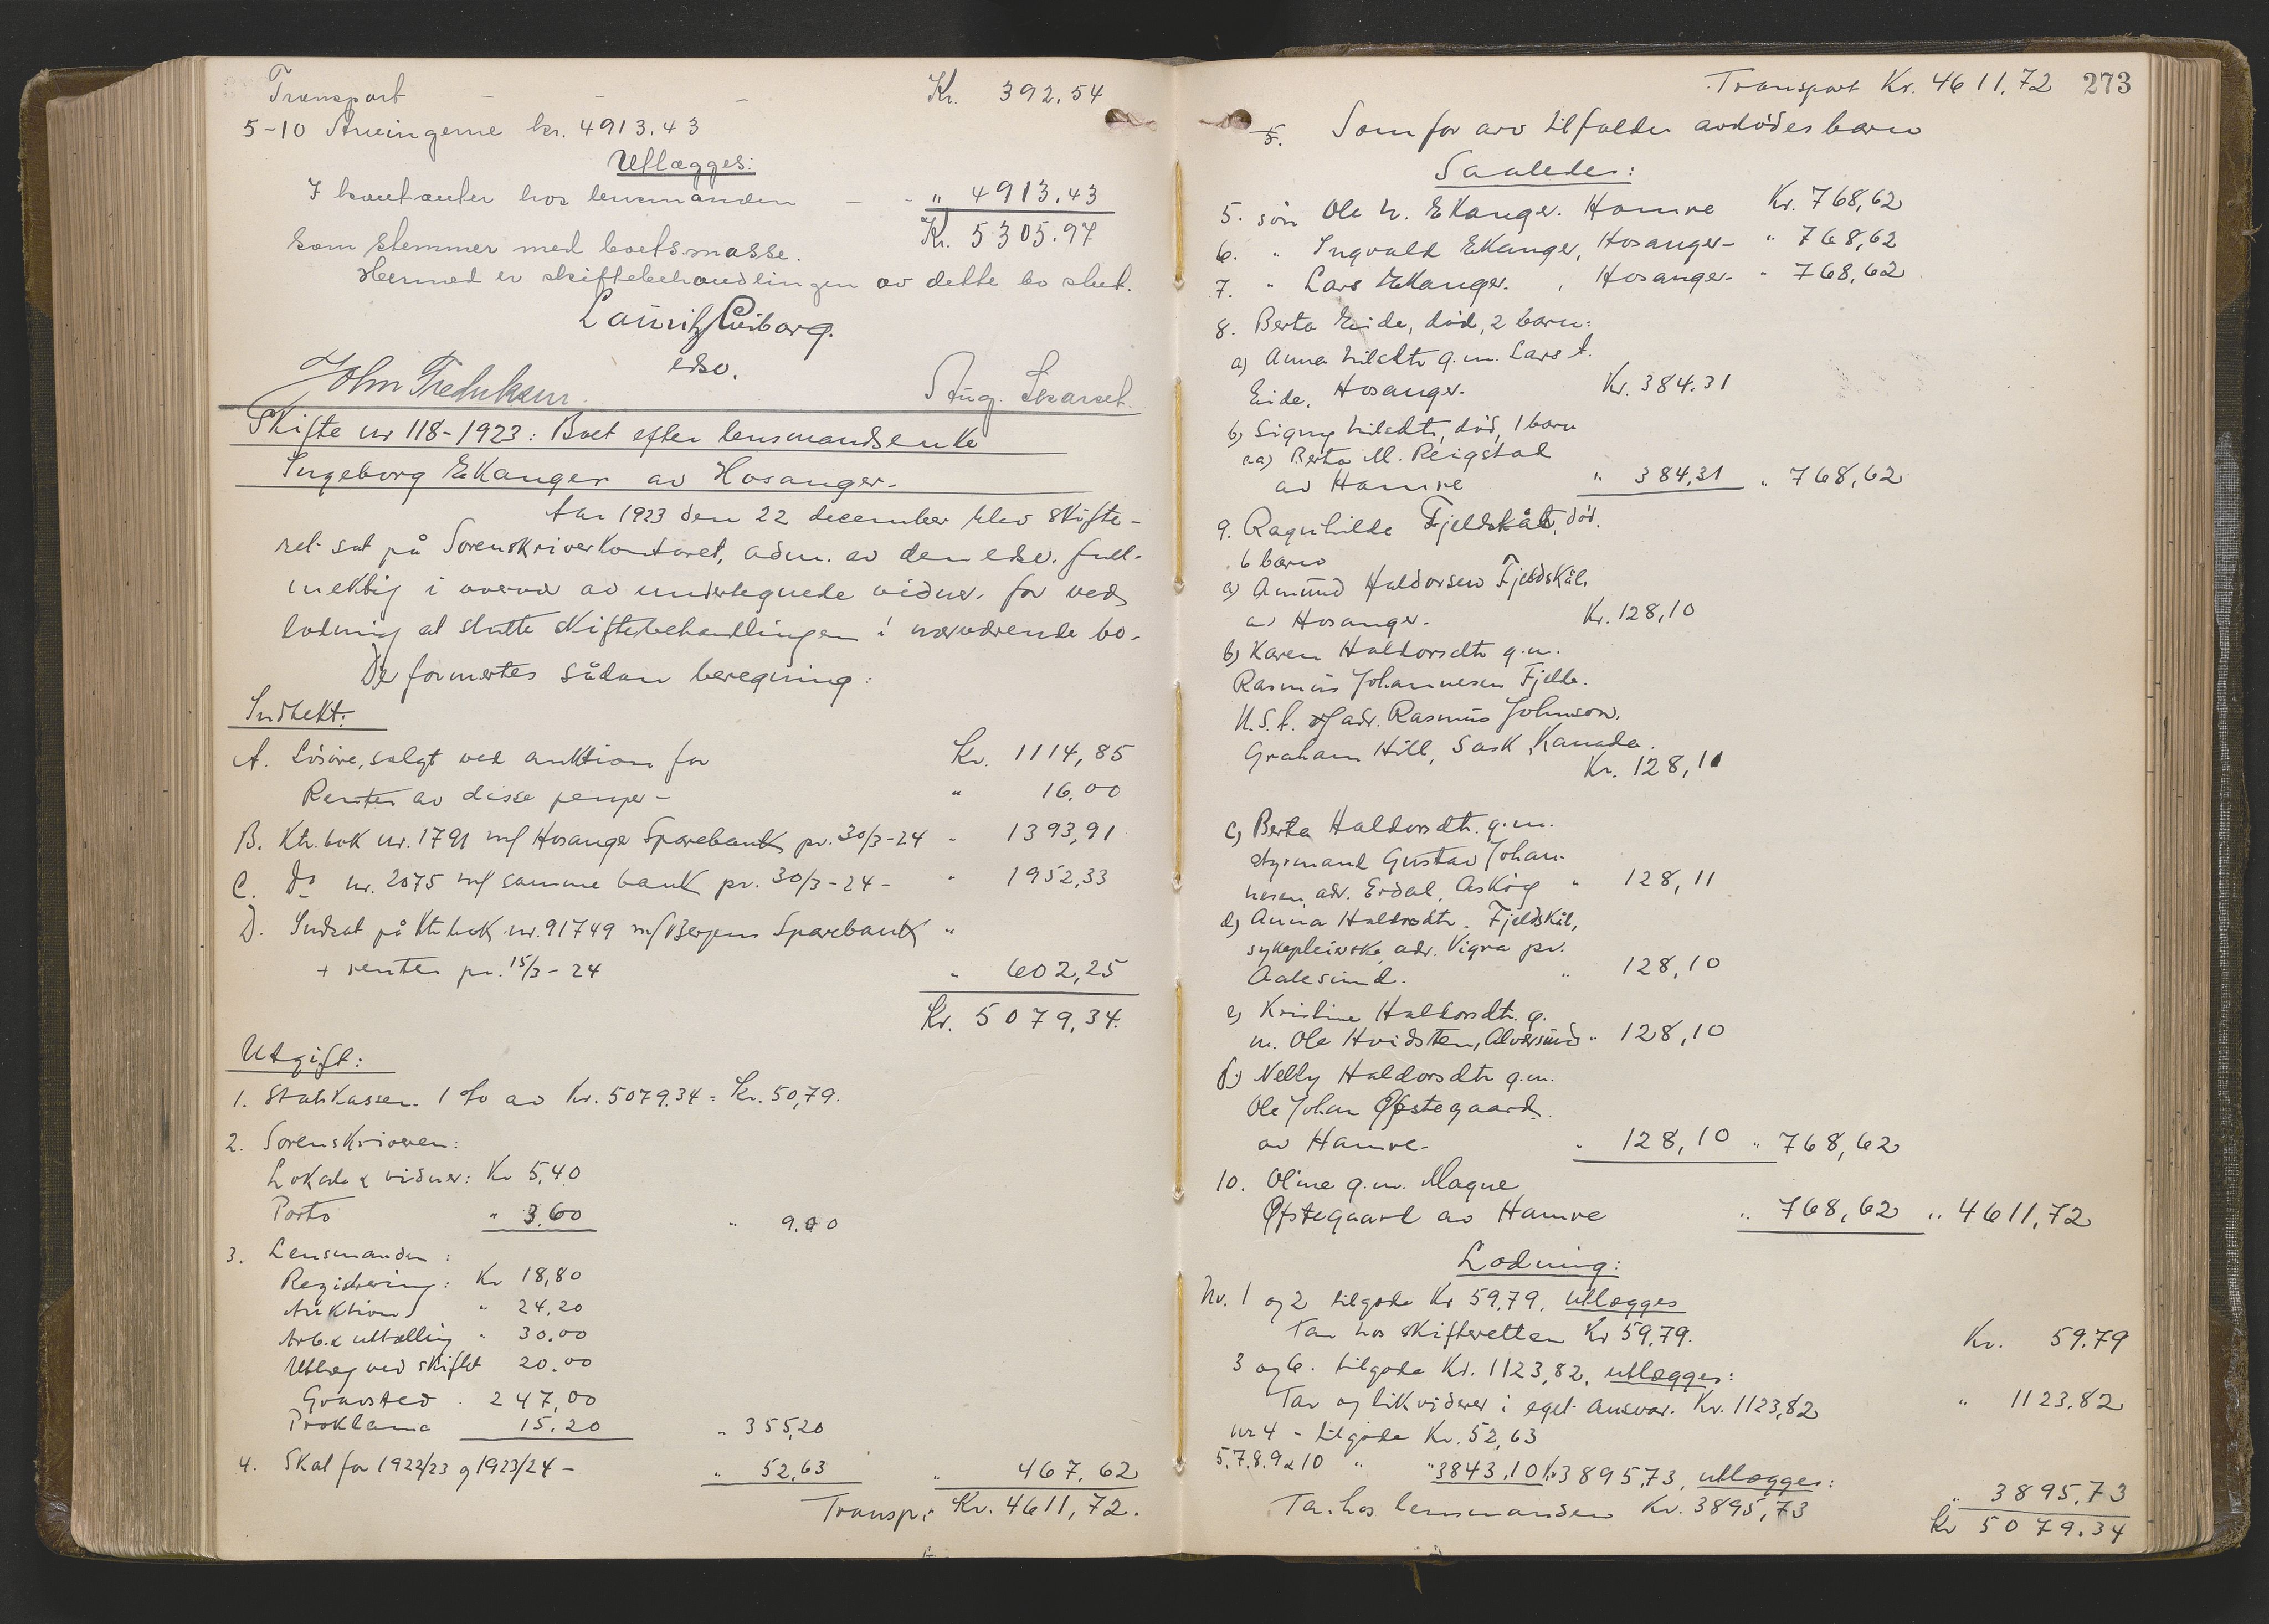 Transport - - - Kr. 392.54
5-10 Arvingerne kr. 4913.43
Utlægges:
I kontanter hos lensmanden - - " 4913.43
Kr. 5305.97
som stemmer med boets masse.
Hermed er skiftebehandlingen av dette bo slut.
Lauritz
edsv.
John Fredriksen. Aug.
Skifte nr 118-1923: Boet efter lensmandsenke
Ingeborg Ekanger av Hosanger.
Aar 1923 den 22 december blev skifte-
ret sat på Sorenskriverkontoret, adm. av den edsv. full-
mektig i overvær av undertegnede vidner, for ved
lodning at slutte skiftebehandlingen i nærværende bo.
De formertes sådan beregning:
Indtekt:
A. Lösöre, solgt ved auktion for Kr. 1114,85
Renter av disse penger - " 16.00
B. Ktr. bok nr. 1791 m/ Hosanger Sparebank pr. 30/3-24 " 1393,91
C. Do nr. 2075 m/ samme bank pr. 30/3-24 - " 1952,33
D. Indsat på Ktr. bok nr. 91749 m/ Bergens Sparebank "
+ renter pr. 15/3-24 " 602,25
Kr. 5079,34.
Utgift:
1. Statskassen. 1 % av Kr. 5079.34 = Kr. 50,79.
2. Sorenskriveren:
Lokale & vidner: Kr 5,40
Porto " 3.60 " 9.00
3. Lensmanden:
Registrering: Kr 18,80
Auktion " 24,20
Arb. & uttælling " 30.00
Utlæg ved skiftet 20.00
Gravsted . 247,00
Proklama 15.20 " 355,20
4. Skat for 1922/23 og 1923/24 - " 52,63 " 467,62
Transp.: Kr. 4611,72.
Transport Kr. 4611,72 273
5. Som for arv tilfalder avdødes barn
Saaledes:
5. sön Ole N. Ekanger. Hamre Kr. 768,62
6. " Ingvald Ekanger, Hosanger - " 768,62
7. " Lars Ekanger. , Hosanger - " 768,62
8. Berta Eide, död, 2 barn:
a) Anna Nilsdtr g.m. Lars A.
Eide, Hosanger. Kr. 384.31
b) Signy Nilsdtr, död, 1 barn
aa) Berta M. Reigstad
av Hamre " 384,31 " 768,62
9. Ragnhilde Fjeldskål, död.
6 barn
a) Amund Haldorsen Fjeldskål,
av Hosanger. Kr. 128,10
b) Karen Haldorsdtr g.m.
Rasmus Johannesen Fjelde.
U.S.A. adr. Rasmus Johnson,
Graham Hill, Sask, Kanada.
Kr. 128,11
c) Berta Haldorsdtr. g.m.
styrmand Gustav Johan-
nesen, adr. Erdal, Asköy " 128,11
d) Anna Haldorsdtr. Fjeldskål,
sykepleierske, adr. Vigra pr.
Aalesund. " 128,10
e) Kristine Haldorsdtr. g.
m. Ole Hvidsten, Alversund " 128,10
f.) Nelly Haldorsdtr g.m.
Ole Johan Øfstegaard.
av Hamre - " 128,10 " 768,62
10. Oline g.m. Magne
Øfstegaard av Hamre " 768,62 " 4611,72
Lodning:
Nr. 1 og 2 tilgode Kr 59,79, utlægges
Tar hos skifteretten Kr 59,79. Kr. 59.79
3 og 6. tilgode Kr. 1123,82, utlægges:
Tar og likviderer i eget ansvar. Kr. 1123,82 " 1123.82
nr 4 - tilgode Kr. 52,63
5.7.8.9 & 10 " " 3843,10 Kr. 3895,73, utlægges:
Tar hos lensmanden Kr. 3895,73 " 3895,73
Kr 5079.34